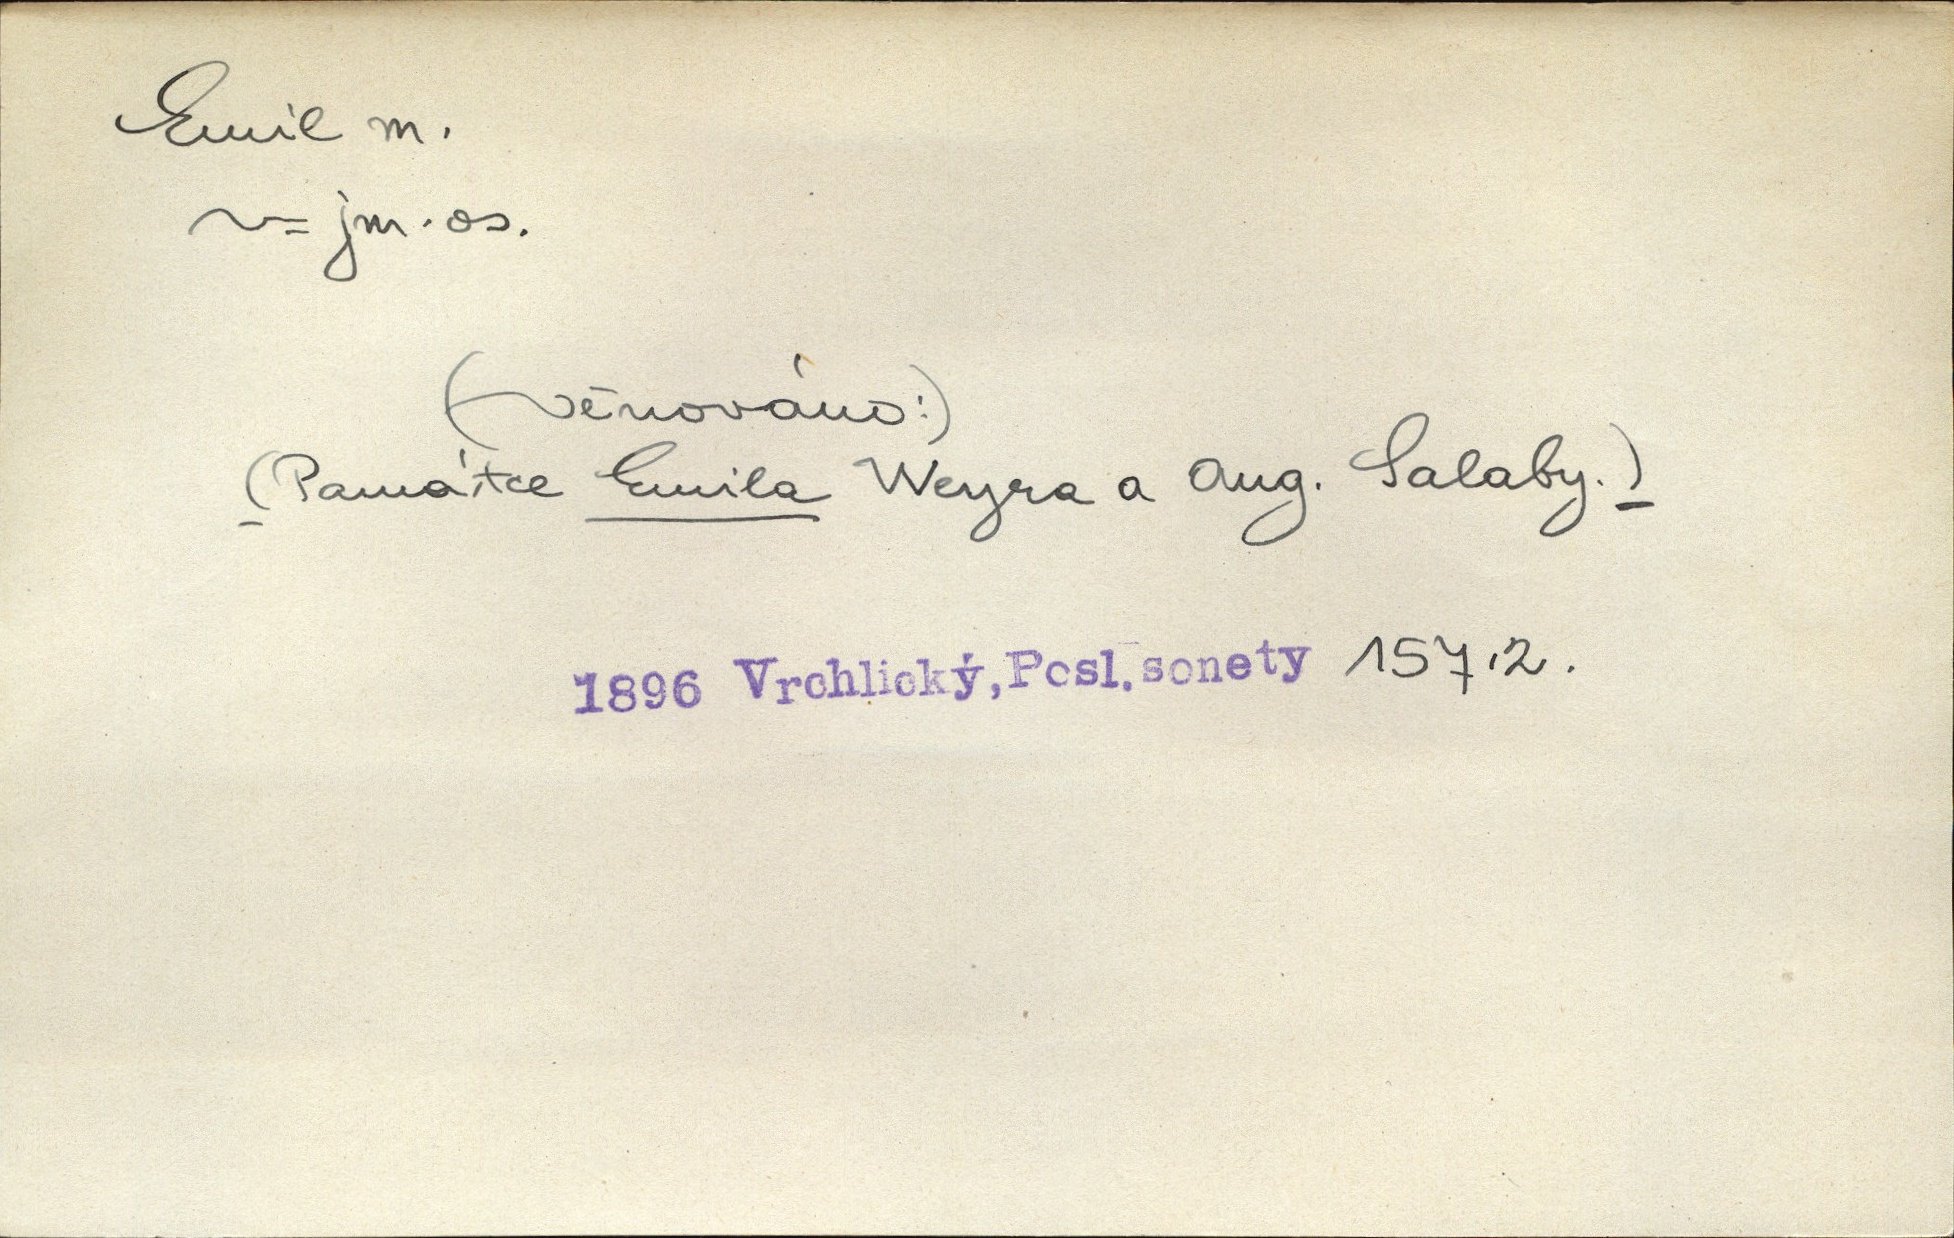 Emil m.
v= jm. os.
(věnováno:)
(Památce Emila Weyra a Aug. Salaby.)
1896 Vrchlický, Posl. sonety 157,2.